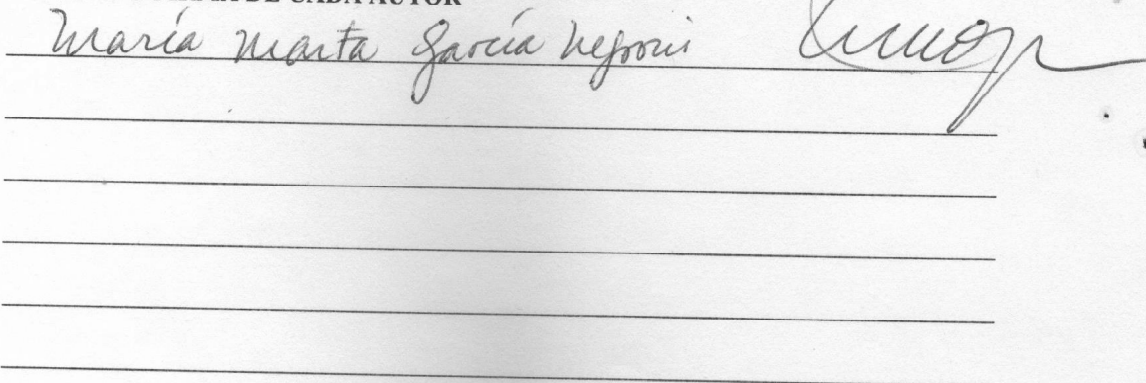 DE CADA AUTOR
María Marta García Negroni